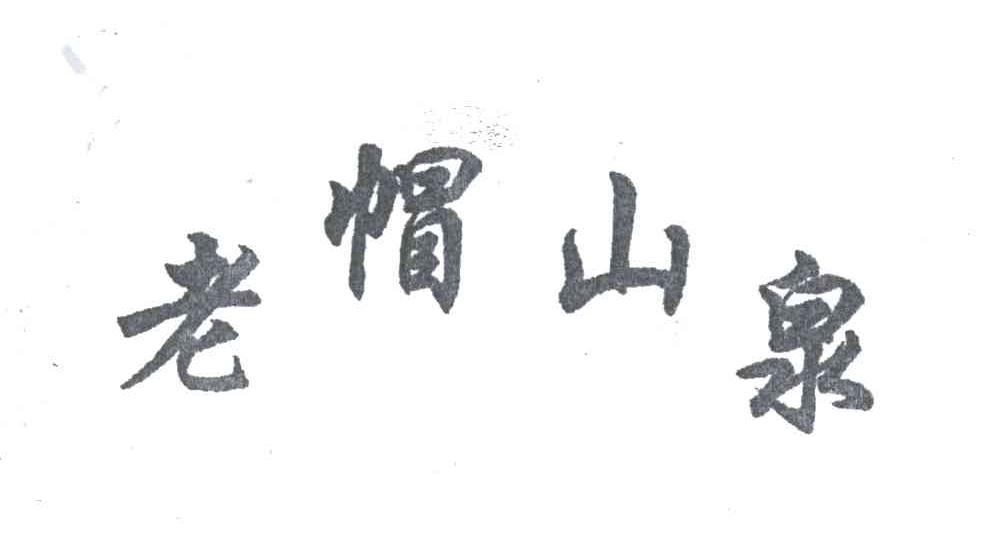 老帽山泉